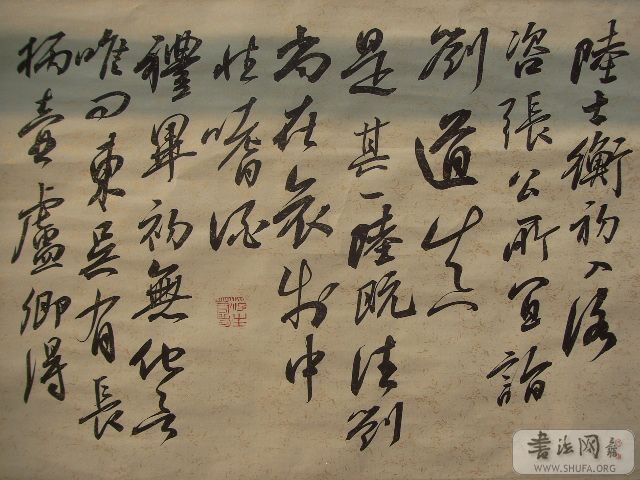 陸士衡初入洛
咨張公所宜詣
劉道真
是其一陸既往劉
尚在哀制中
性嗜酒
禮畢初無他言
唯問東吳有長
柄壺盧卿得
書法网
WWW.SHUFA.ORG